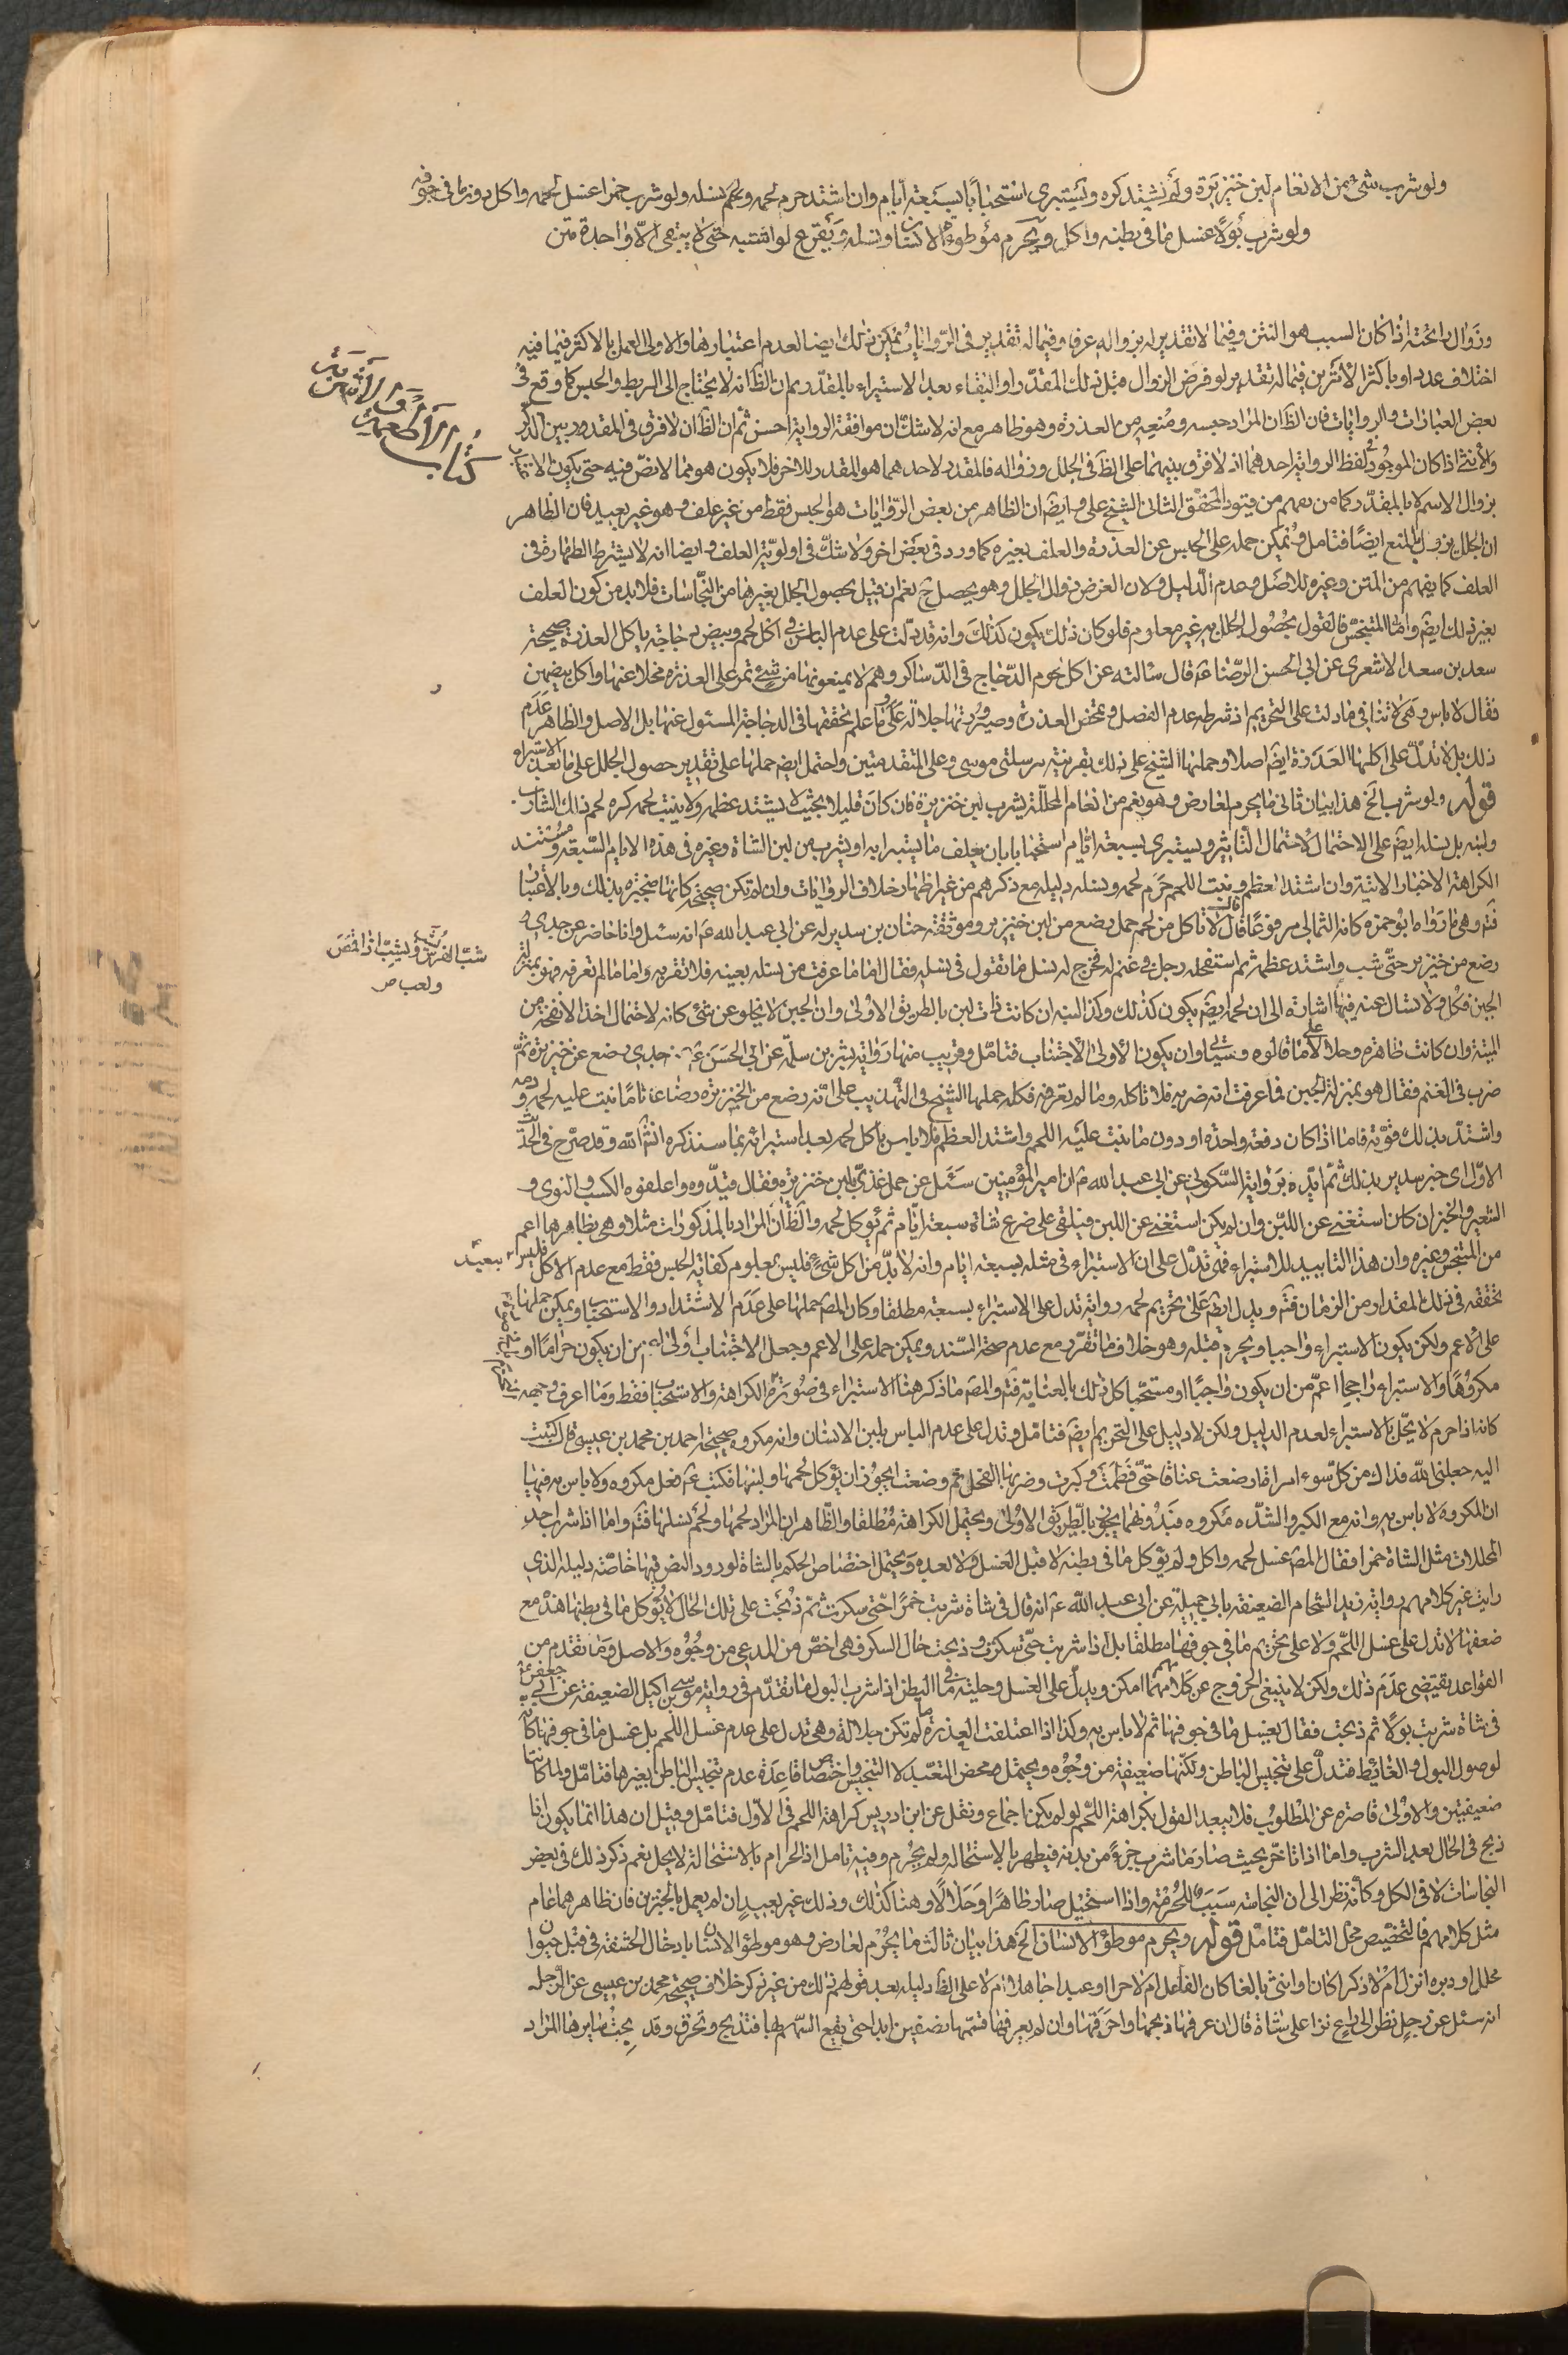 ولو شرب شئ من الانعام لبن خنزيرة ولم يشتد كره ويستبرئ استحبابا بسبعة أيام وان اشتد حرم لحمه ولحم نسله ولو شرب خمرا غسل لحمه واكل دون ما في جوفه
ولو شرب بولا غسل ما في بطنه واكل ويحرم موطوء الانسان ونسله ويقرع لو اشتبه حتى لا يبقى الا واحدة متن
كتاب الأطعمة والأشربة
وزوال رائحته اذا كان السبب هو النتن وفيما لا تقدير له بزواله عرفا وفيما له تقدير في الروايات يمكن ذلك ايضا لعدم اعتبارها والاولى العمل بالاكثر فيما فيه
اختلاف عدد او باكثر الأمرين فيما له تقدير لو فرض الزوال قبل ذلك المقدر او البقاء بعد الاستبراء بالمقدر ثم ان الظ انه لا يحتاج الى الربط والحبس كما وقع في
بعض العبارات والروايات فان الظ ان المراد حبسه ومنعه من العذرة وهو ظاهر مع انه لا شك ان موافقة الرواية احسن ثم ان الظ ان لا فرق في المقدور بين الذكر
والأنثى اذا كان الموجود لفظ الرواية احدهما اذ لا فرق بينهما على الظ في الجلل وزواله فالمقدر لاحدهما هو المقدر للاخر فلا يكون هو مما لا نص فيه حتى يكون الاعتبار
بزوال الاسم لا بالمقدر كما من يفهم من قيود المحقق الثاني الشيخ علي وايضا ان الظاهر من بعض الروايات هو الحبس فقط من غير علف وهو غير بعيد فان الظاهر
ان الجلل يزول بالمنع ايضا فتامل ويمكن حمله على الحبس عن العذرة والعلف بغيره كما ورد في بعض اخر ولا شك في اولوية العلف وايضا انه لا يشترط الطهارة في
العلف كما يفهم من المتن وغيره للاصل وعدم الدليل ولان الغرض زوال الجلل وهو يحصل ح نعم ان قيل بحصول الجلل بغيرها من النجاسات فلا بد من كون العلف
بغير ذلك ايضا واما المتنجس فالقول بحصول الجلل به غير معلوم فلو كان ذلك يكون كذلك وانه قد دلت على عدم الباس في اكل لحم وبيض دجاجة ياكل العذرة صحيحة
سعد بن سعد الاشعري عن ابي الحسن الرضا ع قال سألته عن اكل لحوم الدجاج في الدساكر وهم لا يمنعونها من شئ تمر على العذرة مخلا عنها واكل بيضهن
فقال لا باس وهي لا تنافي ما دلت على التحريم اذ شرطه عدم الفصل وتمحض العذرة وصيرورتها جلالة على ما علم وتحققها في الدجاجة المسئول عنها بل الاصل والظاهر عدم
ذلك بل لا تدل على اكلها العذرة ايضا اصلا وحملها الشيخ على ذلك بقرينة مرسلتي موسى وعلى المتقدمتين واحتمل ايضا حملها على تقدير حصول الجلل على ما بعد الاستبراء
قوله ولو شرب الخ هذا بيان ثاني ما يحرم لعارض وهو نعم من انعام المحللة يشرب لبن خنزيرة فان كان قليلا بحيث لا يشتد عظمه ولا ينبت لحمه كره لحم ذلك الشارب
ولبنه بل نسله ايضا على الاحتمال لاحتمال التاثير ويستبرى بسبعة ايام استحبابا بان يعلف ما يستبرا به او يشرب من لبن الشاة وغيره في هذه الايام السبعة ومستند
الكراهة الاخبار الاتية وان اشتد العظم ونبت اللحم حرم لحمه ونسله دليله مع ذكرهم من غير اظهار خلاف الروايات وان لم تكن صحيحة كانها منجبرة بذلك وبالاعتبار
فتم وهي ما رواه ابو حمزة كانه الثمالي مرفوعا قال قال لا تاكل من لحم حمل رضع من لبن خنزير وموثقة حنان بن سدير له عن ابي عبد الله ع انه سئل وانا حاضر عن جدي
رضع من خنزير حتى شب واشتد عظمه ثم استفحله رجل في غنم له فخرج له نسل ما تقول في نسله فقال اما ما عرفت من نسله بعينه فلا تقربه واما ما لم تعرفه فهو بمنزلة
شب الفرس يشب ويشب اذا قمص
ولعب ص
الجبن فكل ولا تسال عنه فيها اشارة الى ان لحمه ايضا يكون كذلك وكذا لبنه ان كانت ذات لبن بالطريق الاولى وان الجبن لا يخلو عن شئ كانه لاحتمال اخذ الانفحة من
الميتة وان كانت طاهرة وحلالا على ما قالوه وسياتي وان يكون الأولى الاجتناب فتامل وقريب منها رواية بشر بن سلمة عن ابي الحسن ع في جدي رضع عن خنزيرة ثم
ضرب في الغنم فقال هو بمنزلة الجبن فما عرفت انه ضربه فلا تاكله وما لم تعرفه فكله حملها الشيخ في التهذيب على انه رضع من الخنزيرة رضاعا تاما نبت عليه لحمه ودمه
واشتد بذلك قوته فاما اذا كان دفعة واحدة او دون ما ينبت عليه اللحم واشتد العظم فلا باس باكل لحمه بعد استبرائه بما سنذكره انشاء الله وقد صرح في الحديث
الاول اي خبر سدير بذلك ثم ايده برواية السكوني عن ابي عبد الله ع ان امير المؤمنين سئل عن حمل غذي بلبن خنزيرة فقال قيدوه واعلفوه الكسب والنوى و
الشعير والخبز ان كان استغنى عن اللبن وان لم يكن استغنى عن اللبن فيلقى على ضرع شاة سبعة ايام ثم يؤكل لحمه والظ ان المراد بالمذكورات مثلا وهي بظاهرها اعم
من المتنجس وغيره وان هذا التاييد للاستبراء فهي تدل على ان الاستبراء في مثله بسبعة ايام وانه لا بد من اكل شئ فليس بمعلوم كفاية الحبس فقط مع عدم الاكل فليس ببعيد
تحققه في ذلك المقدار من الزمان فتم ويدل ايضا على تحريم لحمه رواية تدل على الاستبراء بسبعة مطلقا وكان المص حملها على عدم الاشتداد والاستحباب ويمكن حملها
على الاعم ولكن يكون الاستبراء واجبا ويحرم قبله وهو خلاف ما تقرر مع عدم صحة السند ويمكن حمله على الاعم وجعل الاجتناب اولى اعم من ان يكون حراما او
مكروها والاستبراء راجحا اعم من ان يكون واجبا او مستحبا كل ذلك بالعناية فتم والمص ما ذكر هنا الاستبراء في صورة الكراهة والاستحباب فقط وما اعرف وجهه
كانه اذا حرم لا يحل بالاستبراء لعدم الدليل ولكن لا دليل على التحريم ايضا فتامل وتدل على عدم الباس بلبن الانسان وانه مكروه صحيحة احمد بن محمد بن عيسى قال كتبت
اليه جعلني الله فداك من كل سوء امراة ارضعت عناقا حتى فطمت وكبرت وضربها الفحل ثم وضعت ايجوز ان يؤكل لحمها ولبنها فكتب ع فعل مكروه ولا باس به فيها
ان المكروه لا باس به وانه مع الكبر والشدة مكروه فبدونهما يجوز بالطريق الاولى ويحتمل الكراهة مطلقا والظاهر ان المراد لحمها ولحم نسلها فتم واما اذا شرب احد
المحللات مثل الشاة خمرا فقال المص غسل لحمه واكل ولم يؤكل ما في بطنه لا قبل الغسل ولا بعده ويحتمل اختصاص الحكم بالشاة لورود النص فيها خاصة دليله الذي
رايت غير كلامهم رواية زيد الشحام الضعيفة بابي جميلة عن ابي عبد الله ع انه قال في شاة شربت خمرا حتى سكرت ثم ذبحت على تلك الحال لا يؤكل ما في بطنها هذه مع
ضعفها لا تدل على غسل اللحم ولا على تحريم ما في جوفها مطلقا بل اذا شربت حتى سكرت وذبحت حال السكر فهي اخص من المدعى من وجوه والاصل وما تقدم من
القواعد يقتضي عدم ذلك ولكن لا ينبغي الخروج عن كلامهم مهما امكن ويدل على الغسل وحلية ما في البطن اذا شرب البول ما تقدم في رواية موسى بن اكيل الضعيفة عن ابي جعفر ع
في شاة شربت بولا ثم ذبحت فقال يغسل ما في جوفها ثم لا باس به وكذا اذا اعتلفت العذرة ما لم تكن جلالة وهي تدل على عدم غسل اللحم بل غسل ما في جوفها كانه
لوصول البول والغائط فتدل على تنجيس الباطن ولكنها ضعيفة من وجوه ويحتمل محض التعبد لا التنجيس واختصاص قاعدة عدم تنجيس الباطن بغيرها فتامل ولما كانتا
ضعيفتين والاولى قاصرة عن المطلوب فلا يبعد القول بكراهة اللحم لو لم يكن اجماع ونقل عن ابن ادريس كراهة اللحم في الاول فتامل وقيل ان هذا انما يكون اذا
ذبح في الحال بعد الشرب واما اذا تاخر بحيث صار ما شرب جزءً من بدنه فيطهر بالاستحالة ولم يحرم وفيه تامل اذ الحرام بالاستحالة لا يحل نعم ذكر ذلك في بعض
النجاسات لا في الكل وكانه نظر الى ان النجاسة سبب للحرمة واذا استحيل صار طاهرا وحلالا وهنا كذلك وذلك غير بعيد ان لم يعمل بالخبرين فان ظاهرهما عام
مثل كلامهم فالتخصيص محل التامل فتامل قوله ويحرم موطؤ الانسان الخ هذا بيان ثالث ما يحرم لعارض وهو موطؤ الانسان بادخال الحشفة في قبل حيوان
محلل او دبره انزل ام لا ذكرا كان او انثى بالغا كان الفاعل ام لا حرا او عبدا جاهلا ام لا على الظ دليله بعد قولهم ذلك من غير ذكر خلاف صحيحة محمد بن عيسى عن الرجل
انه سئل عن رجل نظر الى راع نزا على شاة قال ان عرفها ذبحها واحرقها وان لم يعرفها قسمها نصفين ابدا حتى يقع السهم بها فتذبح وتحرق وقد نجت سايرها المراد